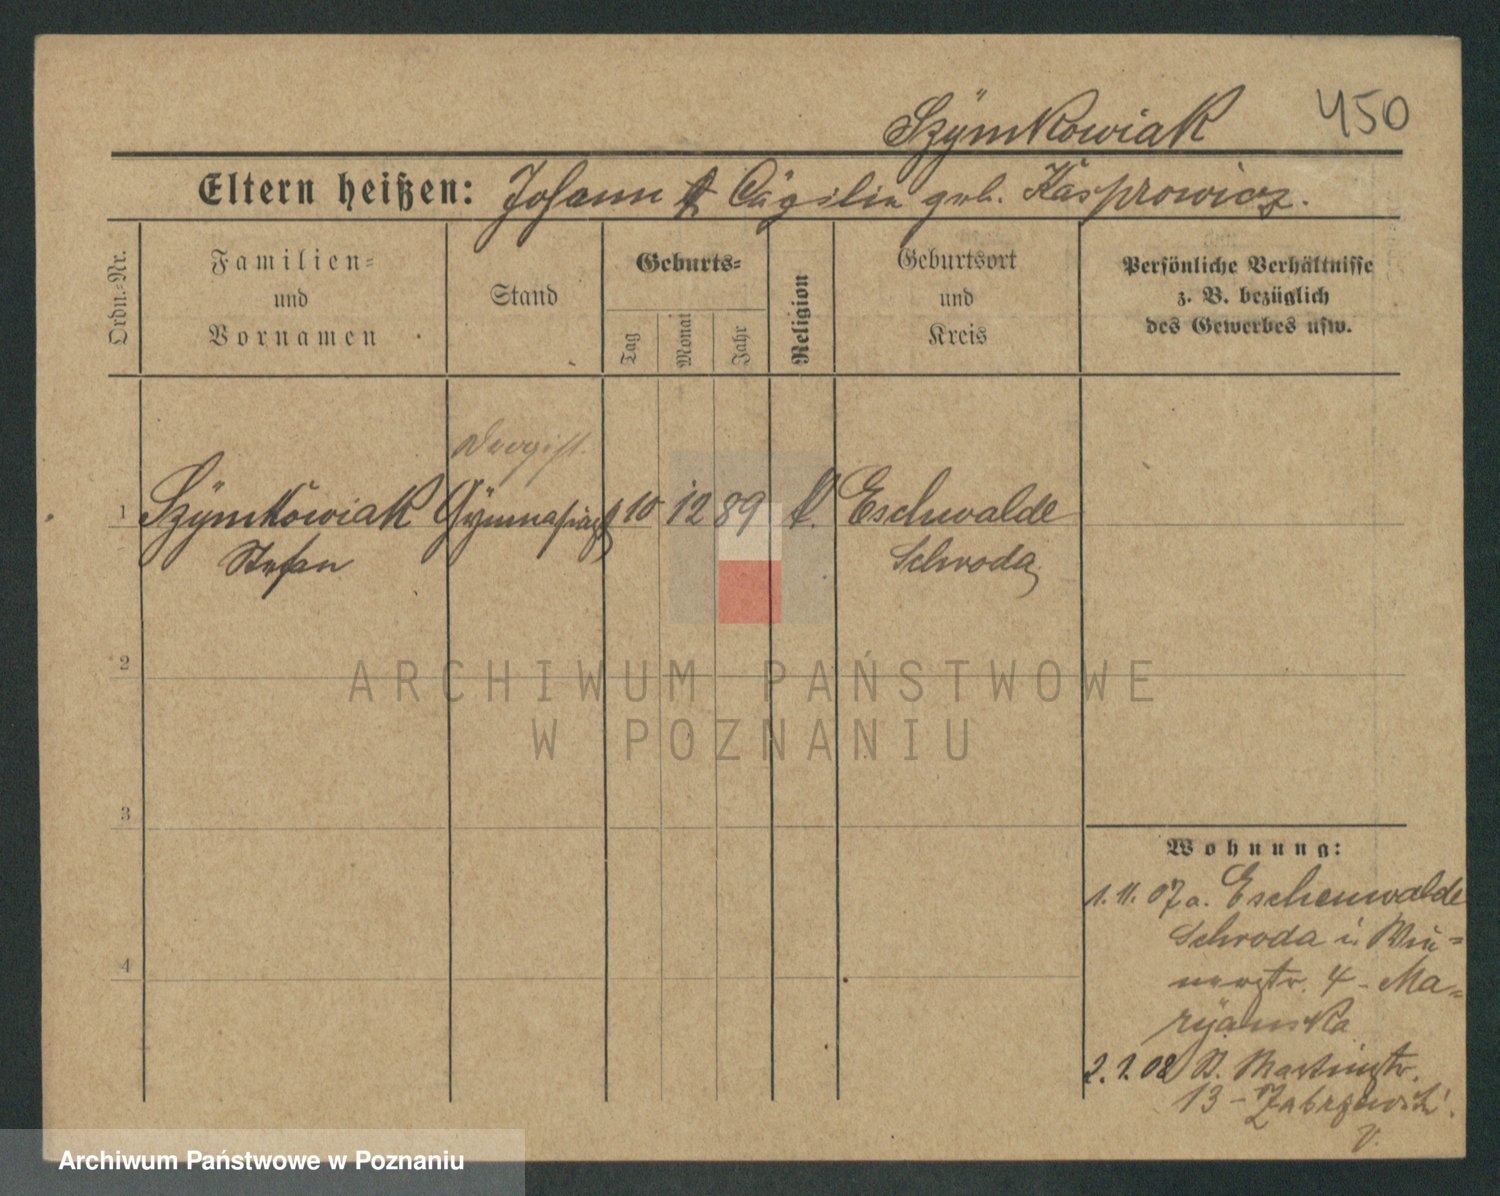 Szÿmkowiak 450
Eltern heißen: Johann & Cäzilie geb. Kasprowicz.
Ordn.-Nr.
Familien-
und
Vornamen
Stand
Geburts-
Tag
Monat
Jahr
Religion
Geburtsort
und
Kreis
Persönliche Verhältnisse
z. B. bezüglich
des Gewerbes usw.
Drogist.
1 Szÿmkowiak Gÿmnasiast 10 12 89 k. Eschwalde
Stefan Schroda
2
3
4
Wohnung:
1. 11. 07 a. Eschenwalde
Schroda
4 - Ma-
rÿanska
2. 1. 08 St. Martinstr.
13 -
V.
ARCHIWUM PAŃSTWOWE
W POZNANIU
Archiwum Państwowe w Poznaniu